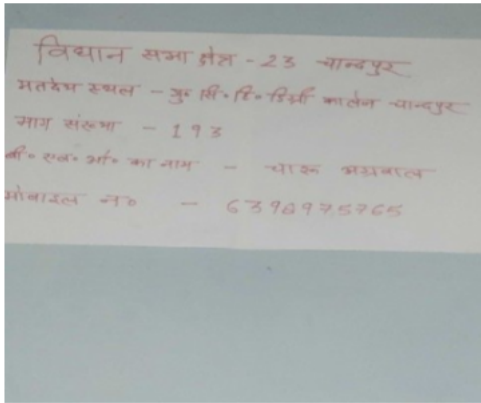 विधान सभा क्षेत्र - 23 चान्दपुर
मतदेय स्थल - गु० सि० डि० डिग्री कालेज चान्दपुर
भाग संख्या - 193
बी० एल० ओ० का नाम - चारू अग्रवाल
मोबाइल न० - 6396975765